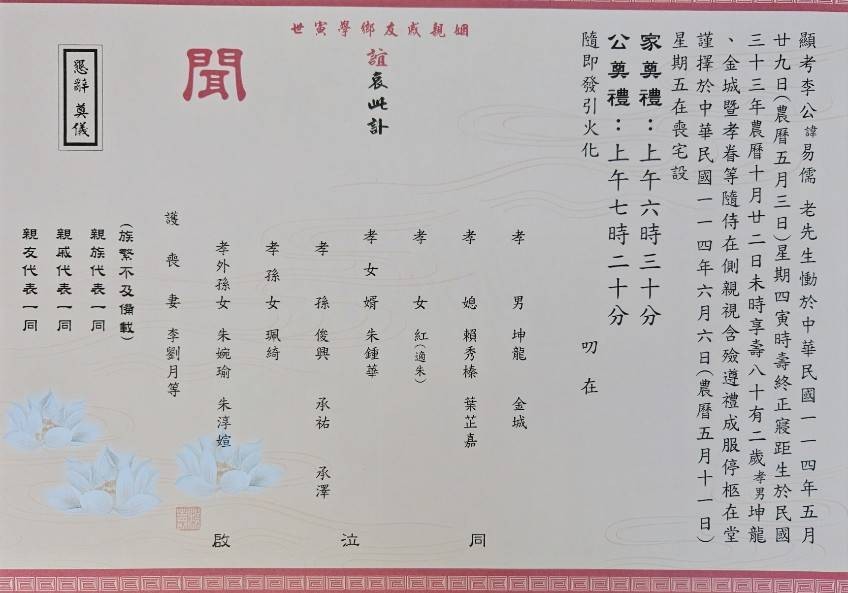 顯考李公諱易儒　老先生慟於中華民國一一四年五月
廿九日(農曆五月三日)星期四寅時壽終正寢距生於民國
三十三年農曆十月廿二日未時享壽八十有二歲孝男坤龍
、金城暨孝眷等隨侍在側親視含殮遵禮成服停柩在堂
謹擇於中華民國一一四年六月六日(農曆五月十一日)
星期五在喪宅設
家奠禮：上午六時三十分
公奠禮：上午七時二十分
隨即發引火化　叨在
姻親戚友鄉學寅世
誼哀此訃
聞
懇辭 奠儀
孝男 坤龍 金城
孝媳 賴秀榛 葉芷嘉
孝女 紅(適朱)
孝女婿 朱鍾華
孝孫 俊興 承祐 承澤
孝孫女 珮綺
孝外孫女 朱婉瑜 朱淳媗
護喪妻 李劉月等
(族繁不及備載)
親族代表一同
親戚代表一同
親友代表一同
同泣啟